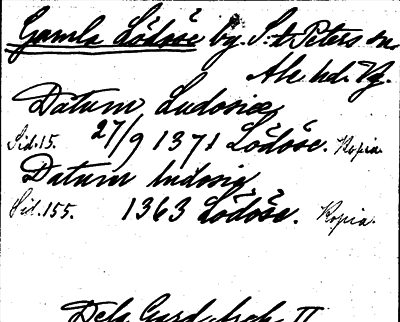 Gamla Lödöse by. S:t Peters sn.
Ale hd. Vg.
Datum Ludosie
Sid. 15. 27/9 1371 Lödöse. Kopia.
Datum ludosie
Sid. 155. 1363 Lödöse. Kopia.
Dela Gard. II